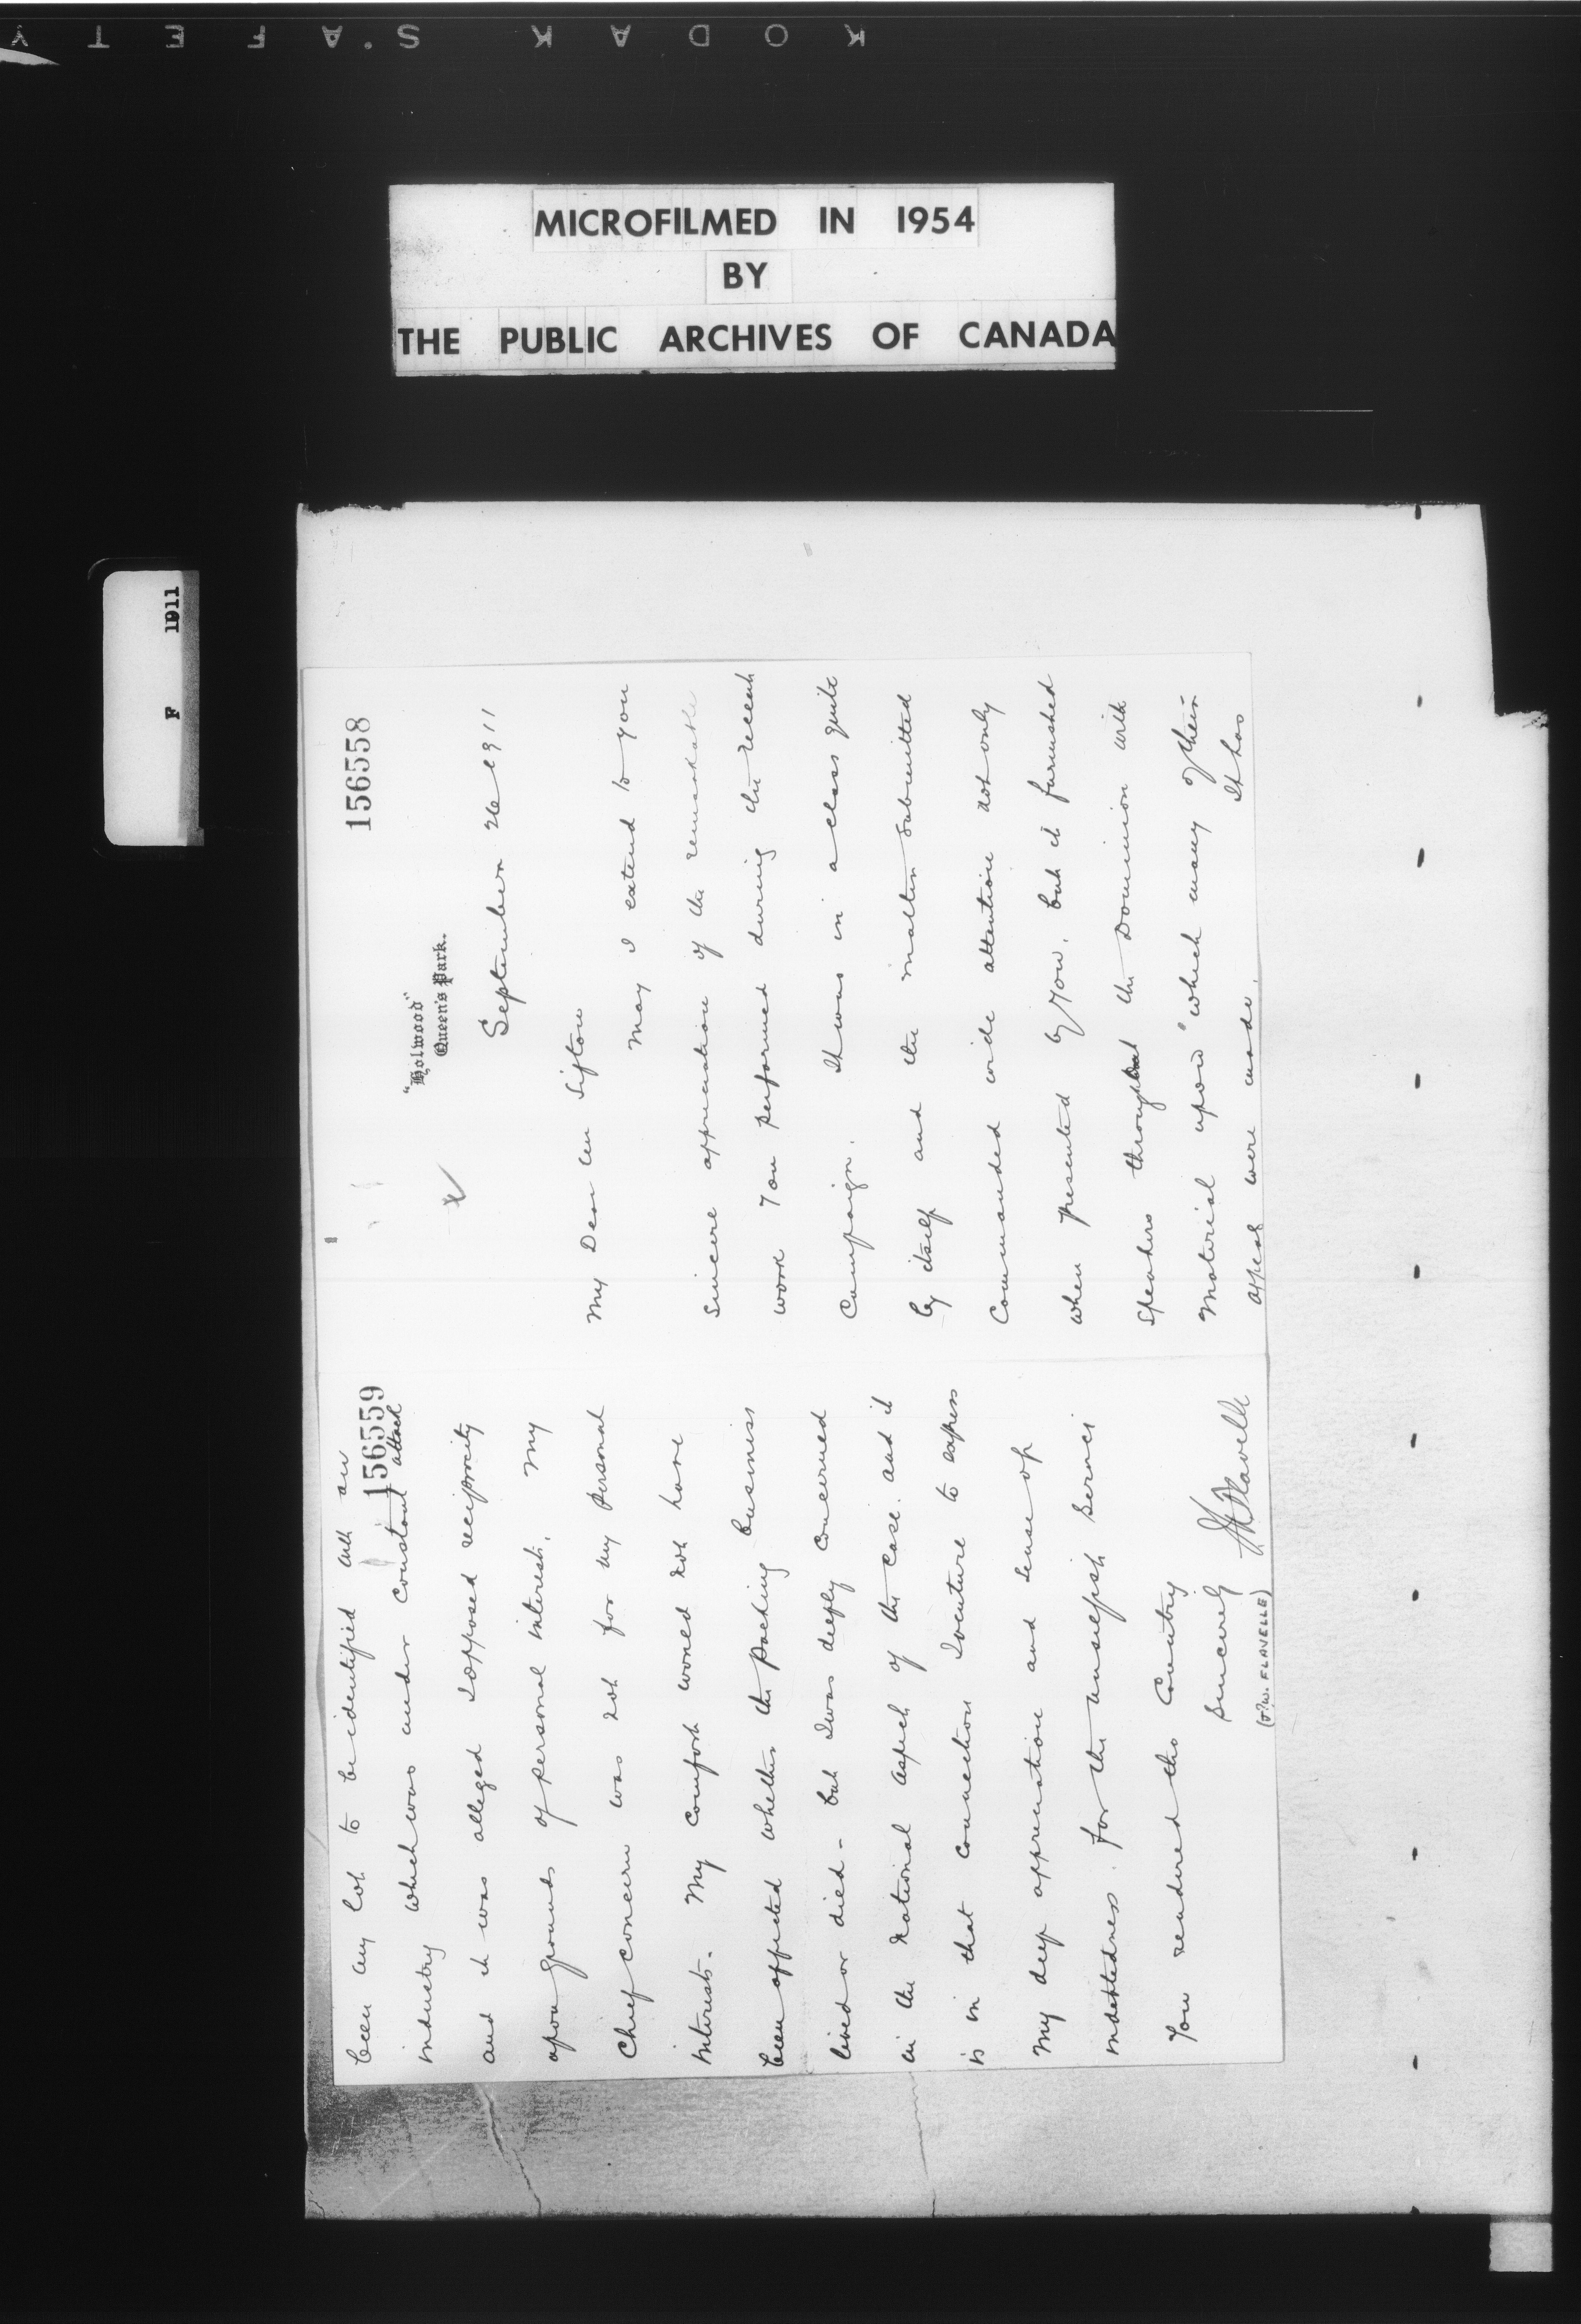 KODAK SAFETY
MICROFILMED IN 1954
BY
THE PUBLIC ARCHIVES OF CANADA
F 1911
156558
"Holwood"
Queen's Park.
September 26 1911
My Dear Mr Sifton
May I extend to you
sincere appreciation of the remarkable
work you performed during the recent
Campaign. It was in a class quite
by itself and the matter submitted
Commanded wide attention not only
when presented by you, but it furnished
speakers throughout the Dominion with
material upon which many of their
appeals were made. It has
156559
been my lot to be identified with an
industry which was under constant attack
and it was alleged I opposed reciprocity
upon grounds of personal interest. My
Chief concern was not for my personal
interests. My comfort would not have
been affected whether the Packing business
lived or died - but I was deeply concerned
in the national aspect of the case. and it
is in that connection I venture to express
my deep appreciation and sense of
indebtedness. for the unselfish service
you rendered the Country
Sincerely
JWFlavelle
(J.W. FLAVELLE)